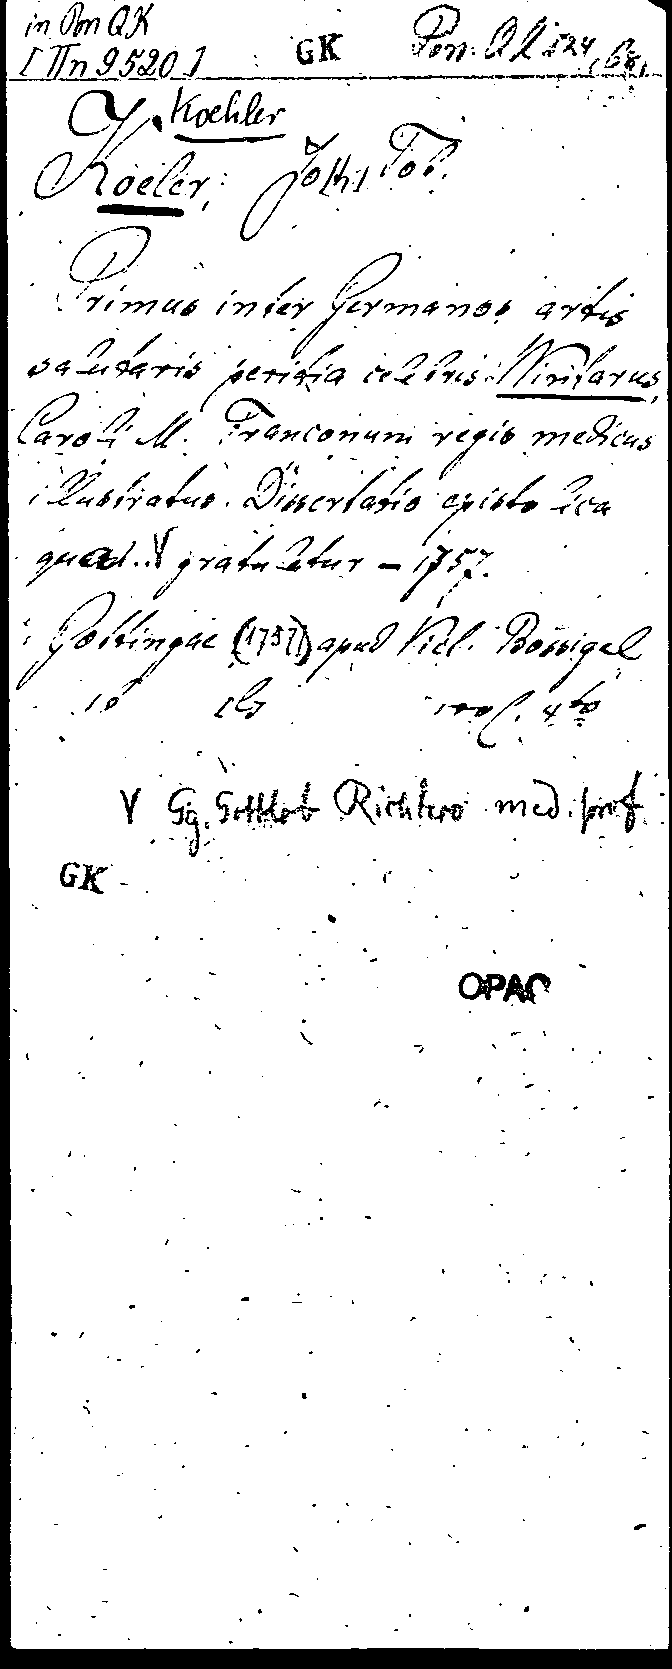 in Pon QK
[IIn 9520]
GK
Pon. Ql 524, 68.
Koehler
Koeler, Joh. Tob.
Primus inter Germanos artis
salutaris peritia celebris: Wintarus,
Caroli M. Franconum regis medicus
illustratus. Dissertatio epistolica
quad. V gratuletur – 1757.
Gottingae (1757) apud Vid. Bossigel
4to
V Gg. Gottlob Richtero med. prof
GK
OPAC